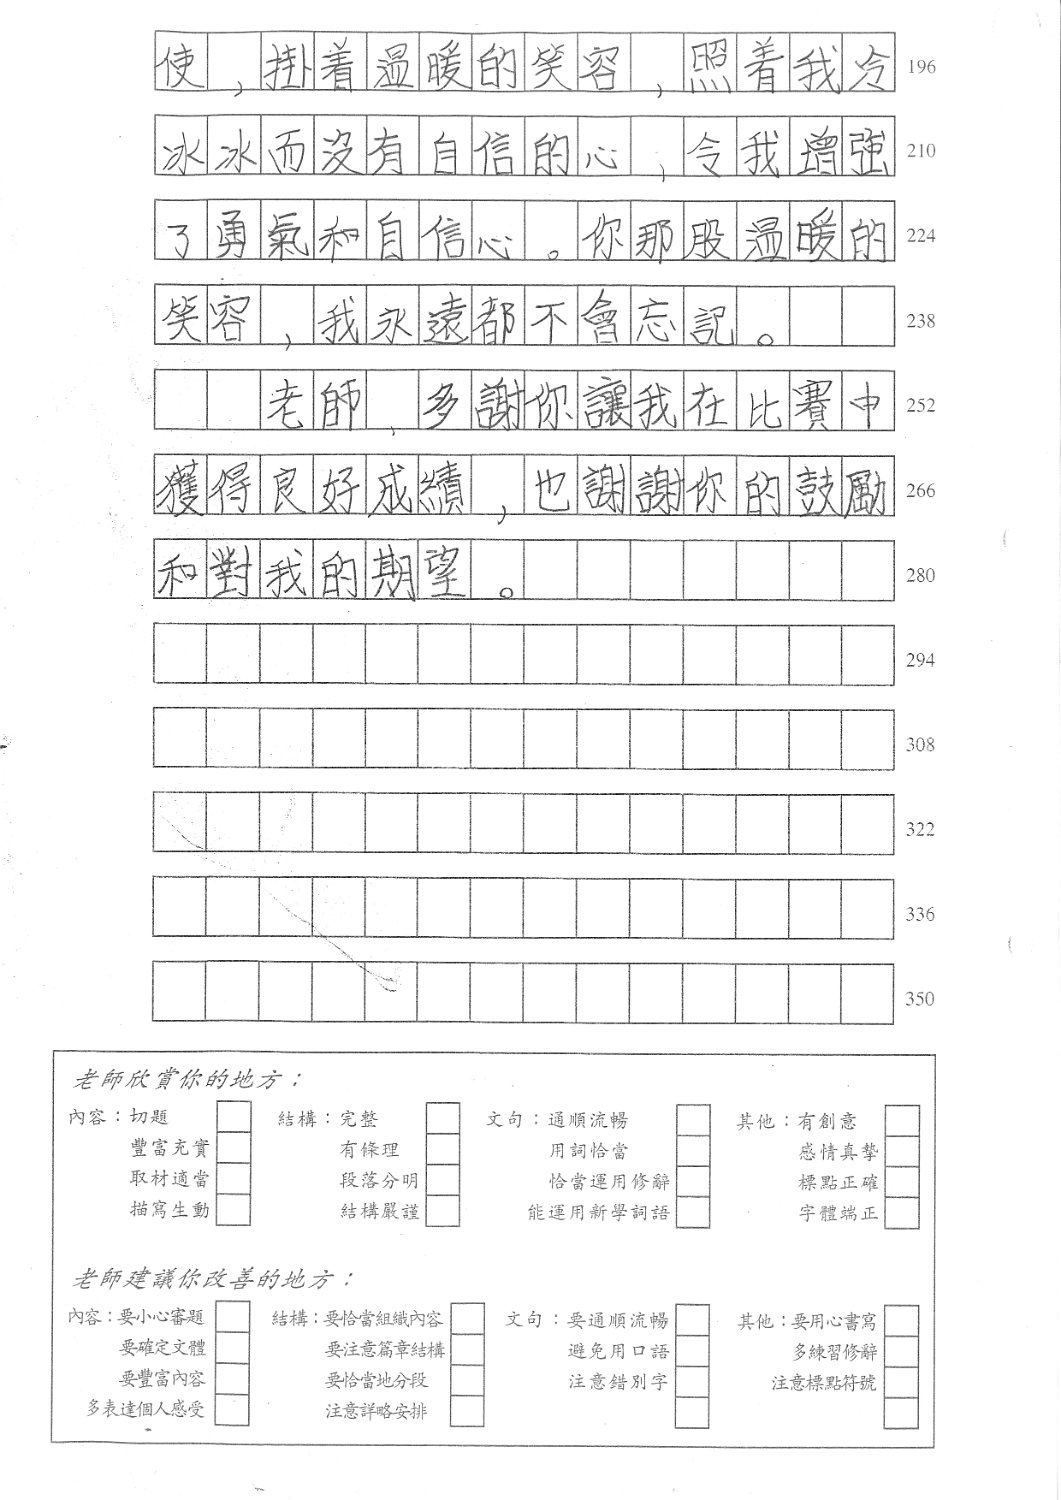 使，掛着溫暖的笑容，照着我冷 196
冰冰而沒有自信的心，令我增強 210
了勇氣和自信心。你那股溫暖的 224
笑容，我永遠都不會忘記。 238
老師，多謝你讓我在比賽中 252
獲得良好成績，也謝謝你的鼓勵 266
和對我的期望。 280
294
308
322
336
350
老師欣賞你的地方：
內容：切題 結構：完整 文句：通順流暢 其他：有創意
豐富充實 有條理 用詞恰當 感情真摯
取材適當 段落分明 恰當運用修辭 標點正確
描寫生動 結構嚴謹 能運用新學詞語 字體端正
老師建議你改善的地方：
內容：要小心審題 結構：要恰當組織內容 文句：要通順流暢 其他：要用心書寫
要確定文體 要注意篇章結構 避免用口語 多練習修辭
要豐富內容 要恰當地分段 注意錯別字 注意標點符號
多表達個人感受 注意詳略安排